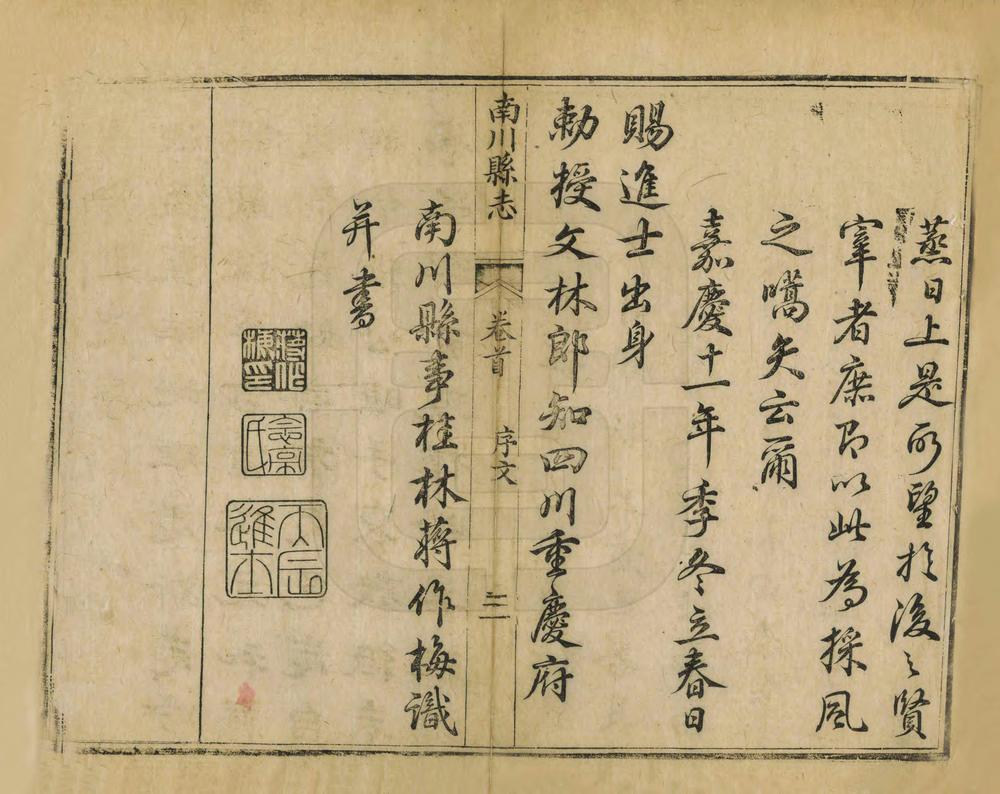 蒸日上是所望於後之賢
宰者庶即以此為採風
之嚆矢云爾
嘉慶十一年季冬立春日
賜進士出身
勅授文林郎知四川重慶府
南川縣志
卷首
序文
二
南川縣事桂林蔣作梅識
并書
蔣作梅印
念京氏
丙辰進士